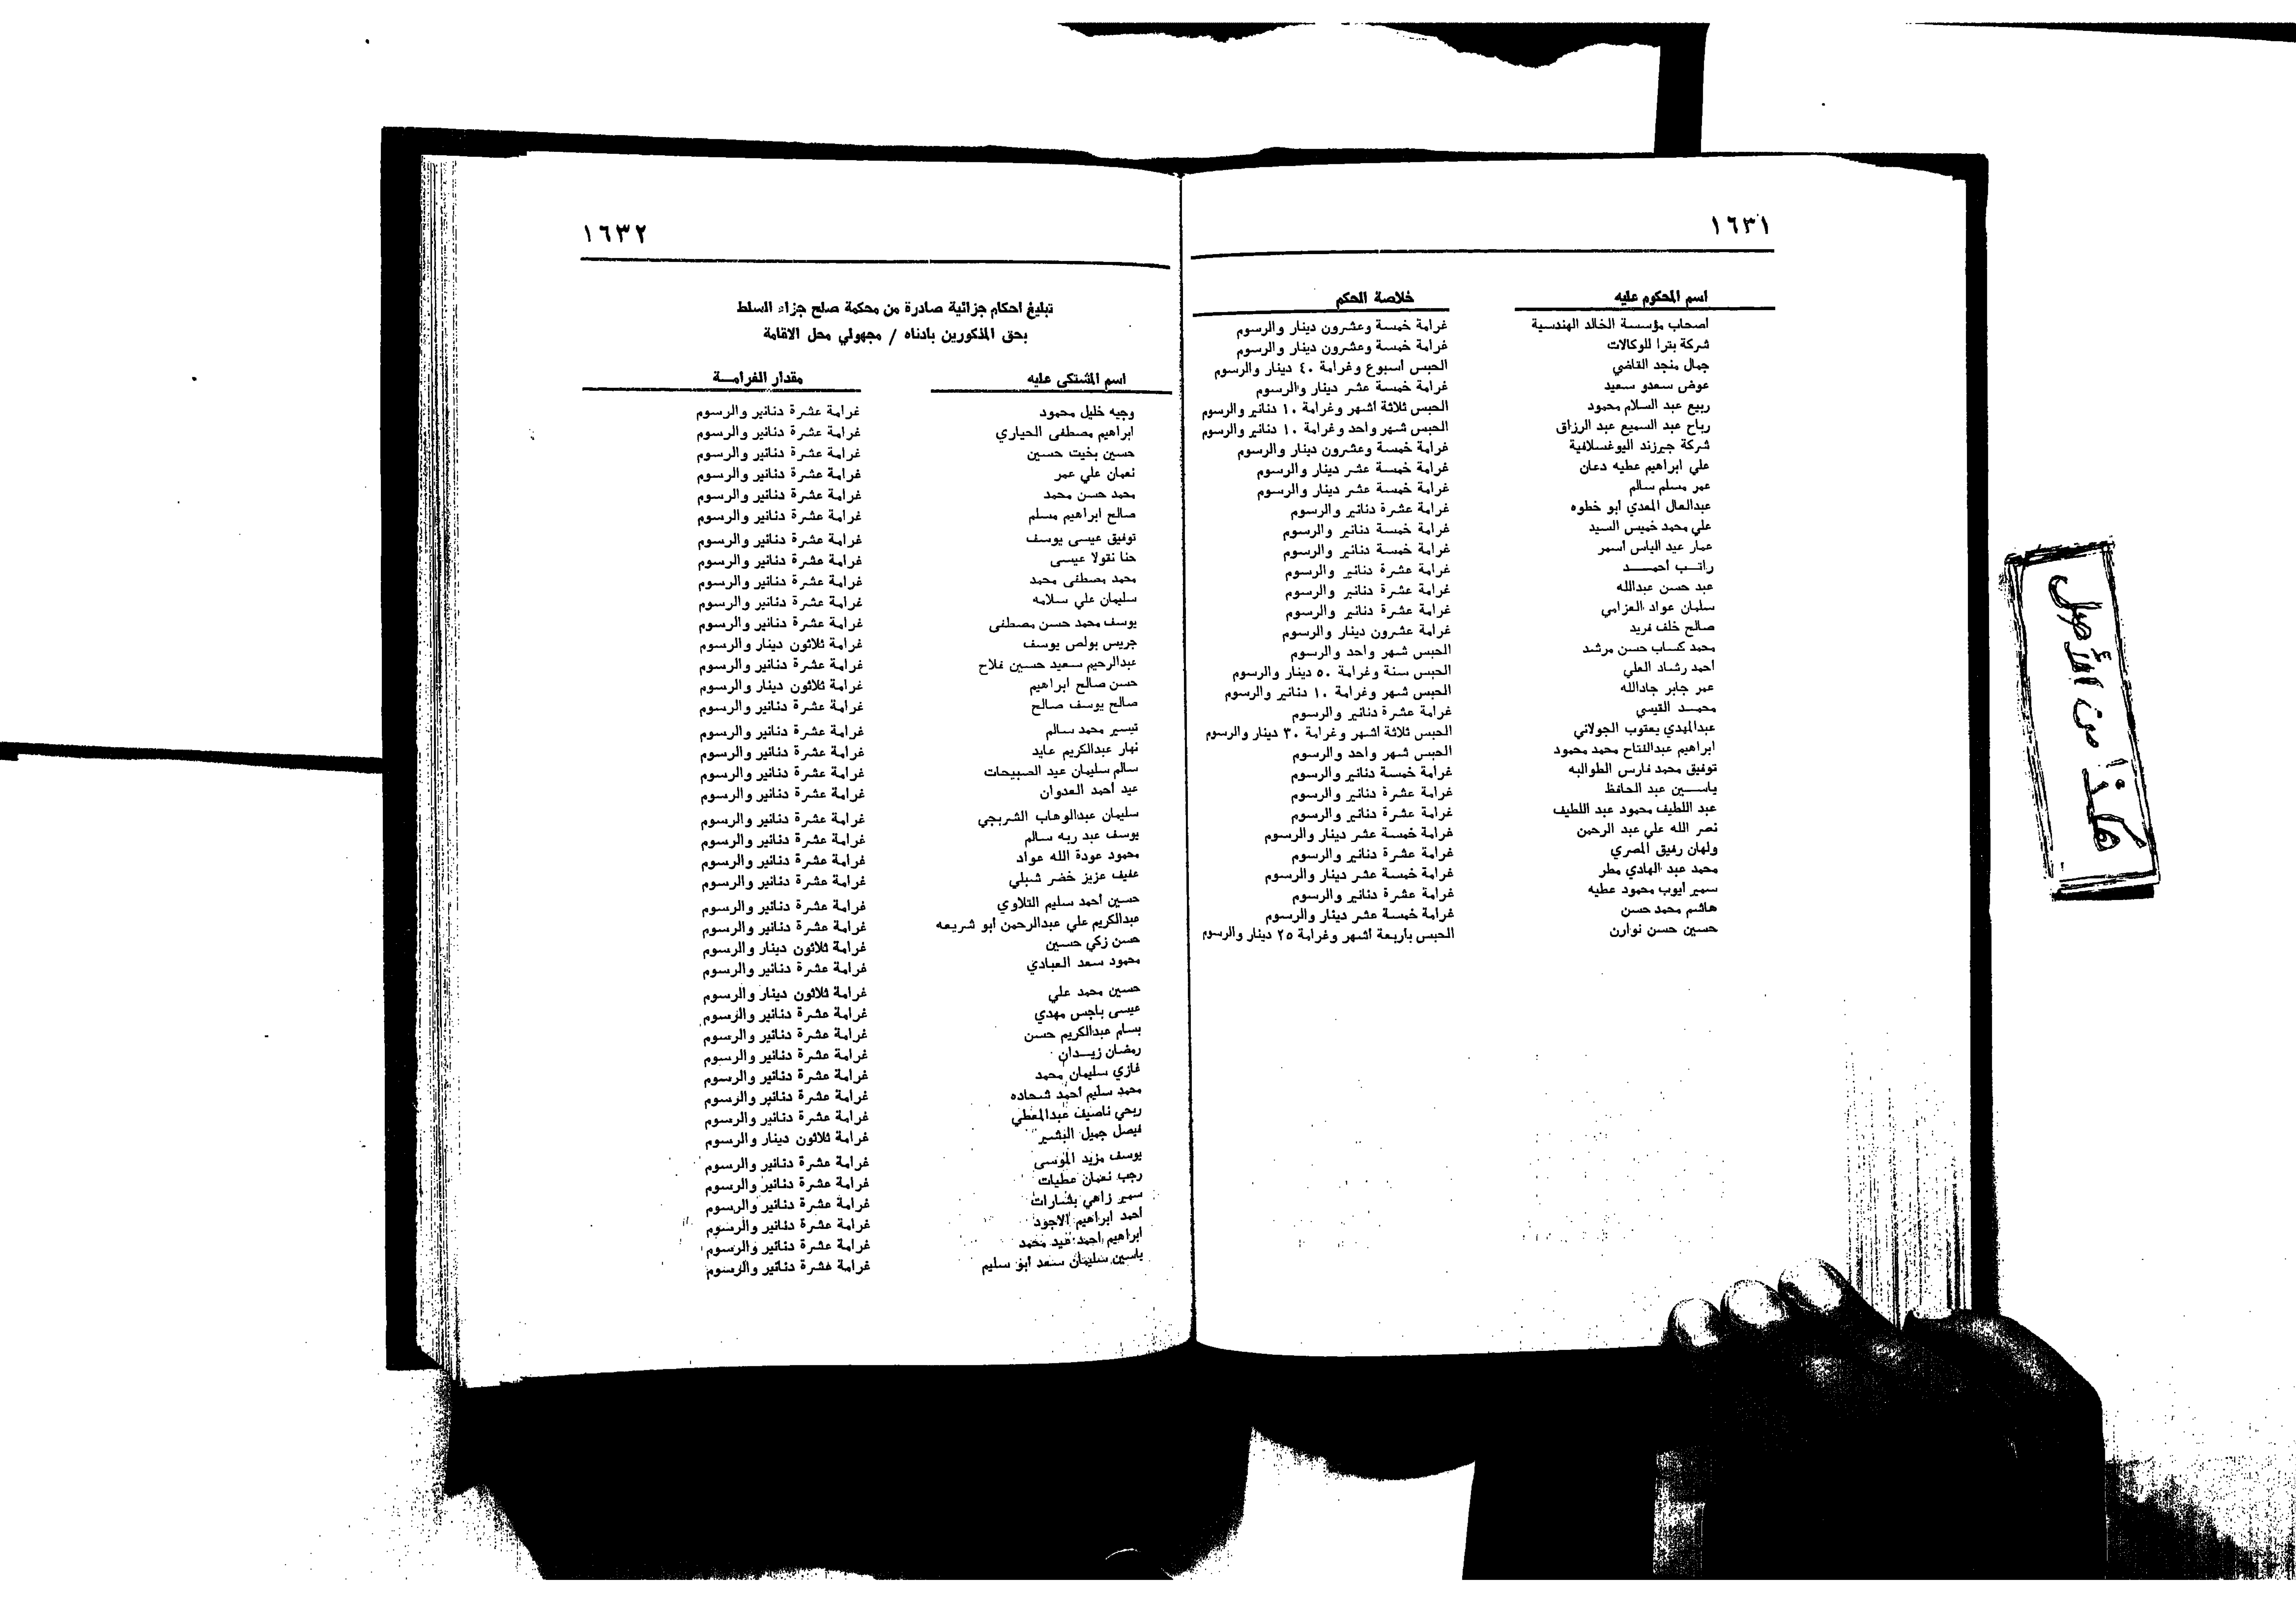 ١٦٣١
اسم المحكوم عليه خلاصة الحكم
اصحاب مؤسسة الخالد الهندسية غرامة خمسة وعشرون دينار والرسوم
شركة بترا للوكالات غرامة خمسة وعشرون دينار والرسوم
جمال منجد القاضي الحبس اسبوع وغرامة ٤٠ دينار والرسوم
عوض سعدو سعيد غرامة خمسة عشر دينار والرسوم
ربيع عبد السلام محمود الحبس ثلاثة اشهر وغرامة ١٠ دنانير والرسوم
رباح عبد السميع عبد الرزاق الحبس شهر واحد وغرامة ١٠ دنانير والرسوم
شركة جيرزند اليوغسلافية غرامة خمسة وعشرون دينار والرسوم
علي ابراهيم عطيه دعان غرامة خمسة عشر دينار والرسوم
عمر مسلم سالم غرامة خمسة عشر دينار والرسوم
عبدالعال المعدي ابو خطوه غرامة عشرة دنانير والرسوم
علي محمد خميس السيد غرامة خمسة دنانير والرسوم
عمار عيد الياس اسمر غرامة خمسة دنانير والرسوم
راتــب احمــــد غرامة عشرة دنانير والرسوم
عبد حسن عبدالله غرامة عشرة دنانير والرسوم
سلمان عواد العزامي غرامة عشرة دنانير والرسوم
صالح خلف فريد غرامة عشرون دينار والرسوم
محمد كساب حسن مرشد الحبس شهر واحد والرسوم
احمد رشاد العلي الحبس سنة وغرامة ٥٠ دينار والرسوم
عمر جابر جادالله الحبس شهر وغرامة ١٠ دنانير والرسوم
محمــد القيسي غرامة عشرة دنانير والرسوم
عبدالمهدي يعتوب الجولاني الحبس ثلاثة اشهر وغرامة ٣٠ دينار والرسوم
ابراهيم عبدالفتاح محمد محمود الحبس شهر واحد والرسوم
توفيق محمد فارس الطوالبه غرامة خمسة دنانير والرسوم
ياســــين عبد الحافظ غرامة عشرة دنانير والرسوم
عبد اللطيف محمود عبد اللطيف غرامة عشرة دنانير والرسوم
نصر الله علي عبد الرحمن غرامة خمسة عشر دينار والرسوم
ولهان رفيق المصري غرامة عشرة دنانير والرسوم
محمد عبد الهادي مطر غرامة خمسة عشر دينار والرسوم
سمير ايوب محمود عطيه غرامة عشرة دنانير والرسوم
هاشم محمد حسن غرامة خمسة عشر دينار والرسوم
حسين حسن نوارن الحبس باربعة اشهر وغرامة ٢٥ دينار والرسوم
١٦٣٢
تبليغ احكام جزائية صادرة من محكمة صلح جزاء السلط
بحق المذكورين بادناه / مجهولي محل الاقامة
اسم المشتكى عليه مقدار الغرامــة
وجيه خليل محمود غرامة عشرة دنانير والرسوم
ابراهيم مصطفى الحياري غرامة عشرة دنانير والرسوم
حسين بخيت حسين غرامة عشرة دنانير والرسوم
نعمان علي عمر غرامة عشرة دنانير والرسوم
محمد حسن محمد غرامة عشرة دنانير والرسوم
صالح ابراهيم مسلم غرامة عشرة دنانير والرسوم
توفيق عيسى يوسف غرامة عشرة دنانير والرسوم
حنا نقولا عيسى غرامة عشرة دنانير والرسوم
محمد مصطفى محمد غرامة عشرة دنانير والرسوم
سليمان علي سلامه غرامة عشرة دنانير والرسوم
يوسف محمد حسن مصطفى غرامة عشرة دنانير والرسوم
جريس بولص يوسف غرامة ثلاثون دينار والرسوم
عبدالرحيم سعيد حسين فلاح غرامة عشرة دنانير والرسوم
حسن صالح ابراهيم غرامة ثلاثون دينار والرسوم
صالح يوسف صالح غرامة عشرة دنانير والرسوم
تيسير محمد سالم غرامة عشرة دنانير والرسوم
نهار عبدالكريم عايد غرامة عشرة دنانير والرسوم
سالم سليمان عيد الصبيحات غرامة عشرة دنانير والرسوم
عيد أحمد العدوان غرامة عشرة دنانير والرسوم
سليمان عبدالوهاب الشربجي غرامة عشرة دنانير والرسوم
يوسف عبد ربه سالم غرامة عشرة دنانير والرسوم
محمود عودة الله عواد غرامة عشرة دنانير والرسوم
عفيف عزيز خضر شبلي غرامة عشرة دنانير والرسوم
حسين أحمد سليم التلاوي غرامة عشرة دنانير والرسوم
عبدالكريم علي عبدالرحمن أبو شريعه غرامة عشرة دنانير والرسوم
حسن زكي حسين غرامة ثلاثون دينار والرسوم
محمود سعد العبادي غرامة عشرة دنانير والرسوم
حسين محمد علي غرامة ثلاثون دينار والرسوم
عيسى باجس مهدي غرامة عشرة دنانير والرسوم
بسام عبدالكريم حسن غرامة عشرة دنانير والرسوم
رمضان زيــدان غرامة عشرة دنانير والرسوم
غازي سليمان محمد غرامة عشرة دنانير والرسوم
محمد سليم أحمد شحاده غرامة عشرة دنانير والرسوم
ربحي ناصيف عبدالمعطي غرامة عشرة دنانير والرسوم
فيصل جميل البشير غرامة ثلاثون دينار والرسوم
يوسف مزيد الموسى غرامة عشرة دنانير والرسوم
رجب نعمان عطيات غرامة عشرة دنانير والرسوم
سمير زاهي بشارات غرامة عشرة دنانير والرسوم
أحمد ابراهيم الاجود غرامة عشرة دنانير والرسوم
ابراهيم احمد عيد محمد غرامة عشرة دنانير والرسوم
ياسين سليمان سعد أبو سليم غرامة عشرة دنانير والرسوم
هكذا من الأصل